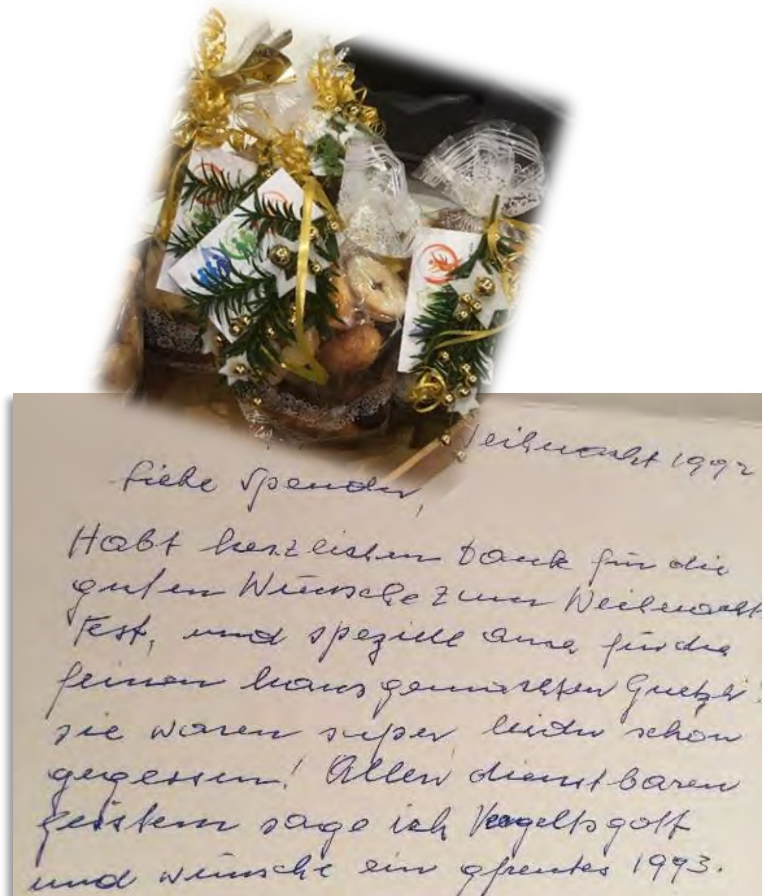 Weihnacht 1992
Liebe Spender,
Habt herzlichen Dank für die
guten Wünsche zum Weihnacht
Fest, und speziell auch für die
feinen hausgemachten Guetzli!
sie waren super, leider schon
gegessen! Allen dienstbaren
geistern sage ich Vergeltsgott
und wünsche ein gfreutes 1993.